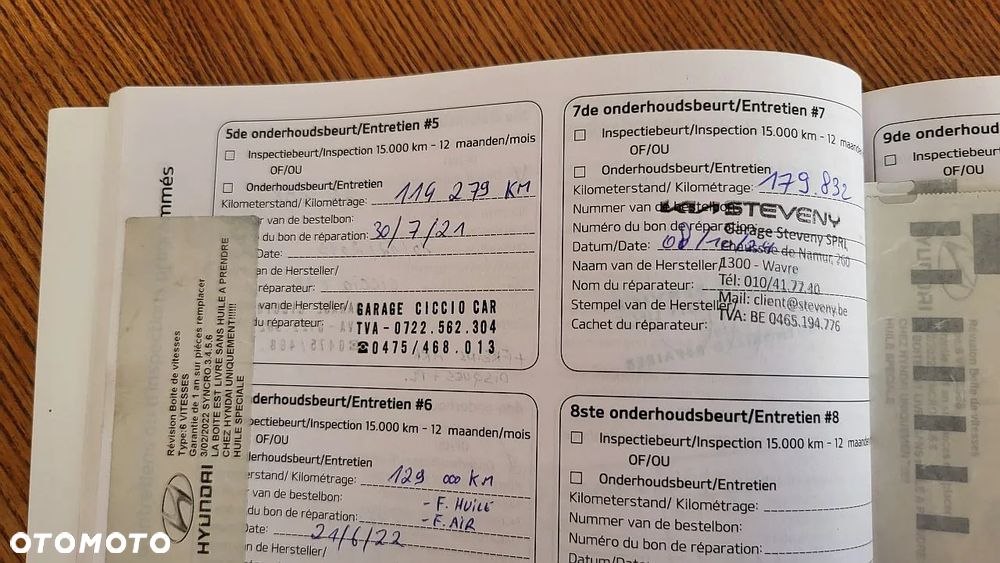 mmés
HYUNDAI
Révision Boite de vitesses
Type:6 VITESSES
Garantie de 1 an sur pièces remplacer
3/02/2022 SYNCRO.3.4.5.6
LA BOITE EST LIVRE SANS HUILE A PRENDRE
CHEZ HYNDAI UNIQUEMENT!!!!!!
HUILE SPECIALE
5de onderhoudsbeurt/Entretien #5
Inspectiebeurt/Inspection 15.000 km - 12 maanden/mois
OF/OU
Onderhoudsbeurt/Entretien
Kilometerstand/ Kilométrage: 119 279 KM
r van de bestelbon:
du bon de réparation: 30/7/21
Date:
van de Hersteller/
réparateur:
van de Hersteller/
du réparateur:
GARAGE CICCIO CAR
TVA - 0722.562.304
☎0475/468.013
derhoudsbeurt/Entretien #6
pectiebeurt/Inspection 15.000 km - 12 maanden/mois
OF/OU
derhoudsbeurt/Entretien
erstand/ Kilométrage: 129 000 KM
van de bestelbon:
- F. HUILE
du bon de réparation:
- F. AIR
Date: 21/6/22
n de Hersteller/
7de onderhoudsbeurt/Entretien #7
Inspectiebeurt/Inspection 15.000 km - 12 maanden
OF/OU
Onderhoudsbeurt/Entretien
Kilometerstand/ Kilométrage: 179.832
Nummer van de bestelbon:
STEVENY
Numéro du bon de réparation:
Garage Steveny SPRL
Datum/Date: 08/
Chaussée de Namur, 260
Naam van de Hersteller/
1300 - Wavre
Nom du réparateur:
Tél: 010/41.77.10
Stempel van de Hersteller/
Mail: client@steveny.be
Cachet du réparateur:
TVA: BE 0465.194.776
8ste onderhoudsbeurt/Entretien #8
Inspectiebeurt/Inspection 15.000 km - 12 maanden
OF/OU
Onderhoudsbeurt/Entretien
Kilometerstand/ Kilométrage:
Nummer van de bestelbon:
Numéro du bon de réparation:
Datum/Date:
9de onderhoud
Inspectiebeurt
OF/OU
OTOMOTO